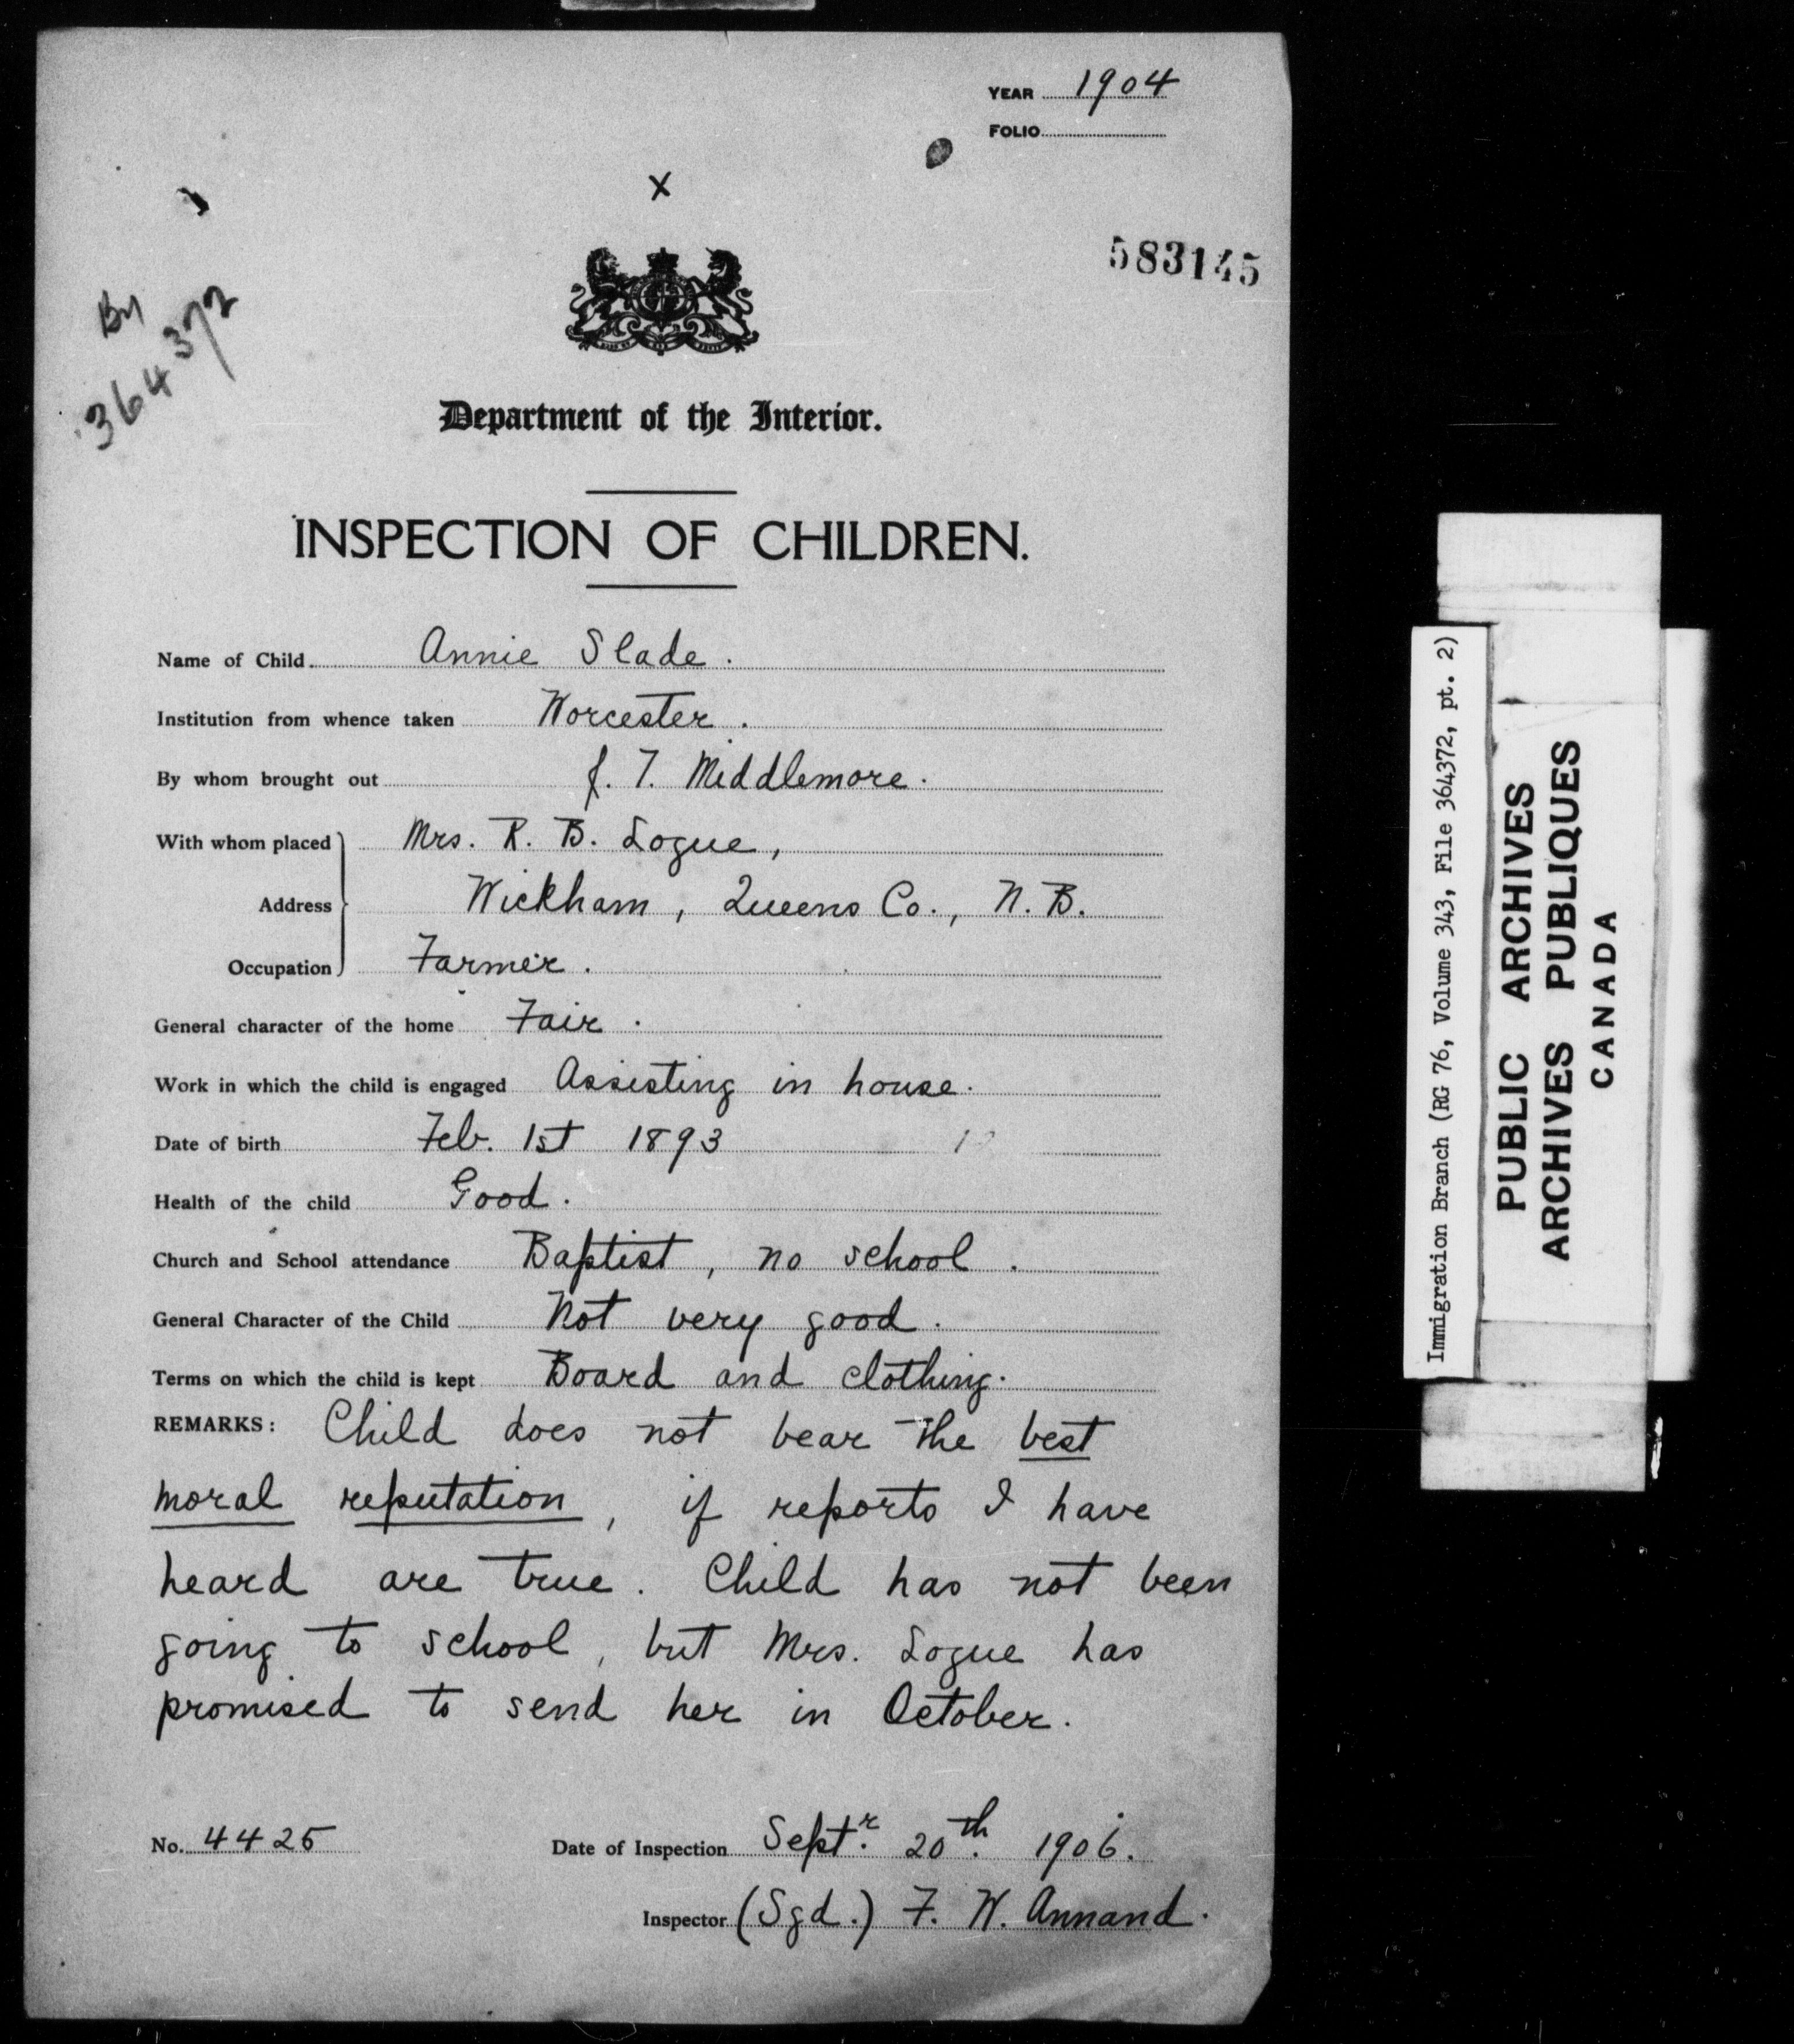 YEAR 1904
FOLIO
X
583145
By
364372
Department of the Interior.
INSPECTION OF CHILDREN.
Name of Child Annie Slade.
Institution from whence taken Worcester.
By whom brought out J. T. Middlemore.
With whom placed Mrs. R. B. Logue,
Address Wickham, Queens Co., N. B.
Occupation Farmer.
General character of the home Fair.
Work in which the child is engaged Assisting in house.
Date of birth Feb. 1st 1893
Health of the child Good.
Church and School attendance Baptist, no school.
General Character of the Child Not very good.
Terms on which the child is kept Board and clothing.
REMARKS: Child does not bear the best
moral reputation, if reports I have
heard are true. Child has not been
going to school, but Mrs. Logue has
promised to send her in October.
No. 4425 Date of Inspection Septr. 20th. 1906.
Inspector (Sgd.) F. W. Annand.
Immigration Branch (RG 76, Volume 343, File 364372, pt. 2)
PUBLIC ARCHIVES
ARCHIVES PUBLIQUES
CANADA